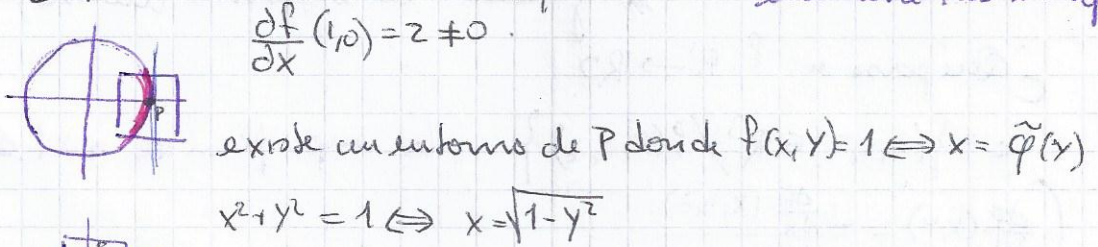 ∂f/∂x (1,0) = 2 ≠ 0.
P
existe un entorno de P donde f(x,y)=1 ⟺ x = φ̃(y)
x² + y² = 1 ⟺ x = √(1-y²)